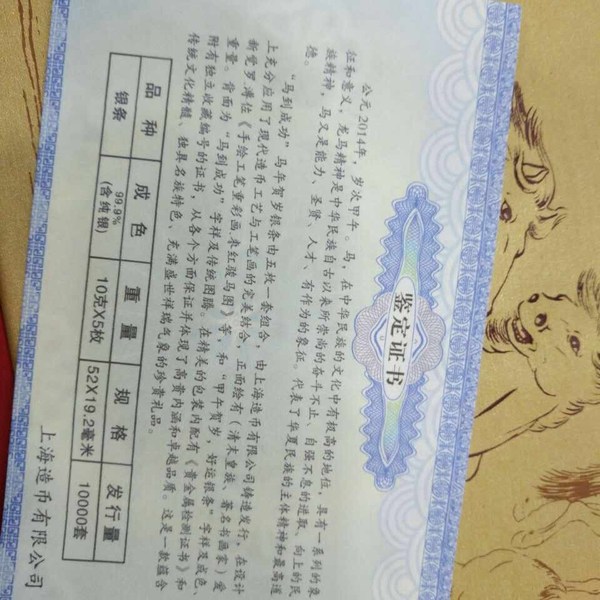 鉴定证书
公元2014年，岁次甲午。马，在中华民族的文化中有极高的地位，具有一系列的象
征和意义，龙马精神是中华民族自古以来所崇尚的奋斗不止、自强不息的进取、向上的民
族精神，马又是能力、圣贤、人才、有作为的象征。代表了华夏民族的主体精神和最高道
德。
“马到成功”马年贺岁银条由五枚一套组合，由上海造币有限公司铸造发行，在设计
上充分应用了现代造币工艺与工笔画的完美结合，正面绘有（清末皇族、著名书画家）爱
新觉罗.溥佐《手绘工笔重彩画.朱红骏马图》等，和“甲午贺岁，好运银条”字样及成色、
重量。背面为“马到成功”字样及传统图腾。在精美的包装内配有《贵金属检测证书》和
附有独立收藏编号的证书，从各个方面保证并体现了高贵内涵和卓越品质。这是一款蕴含
传统文化精髓、独具名族特色、充满盛世祥瑞气象的珍贵礼品。
品种 成色 重量 规格 发行量
银条 99.9%(含纯银) 10克X5枚 52X19.2毫米 10000套
上海造币有限公司